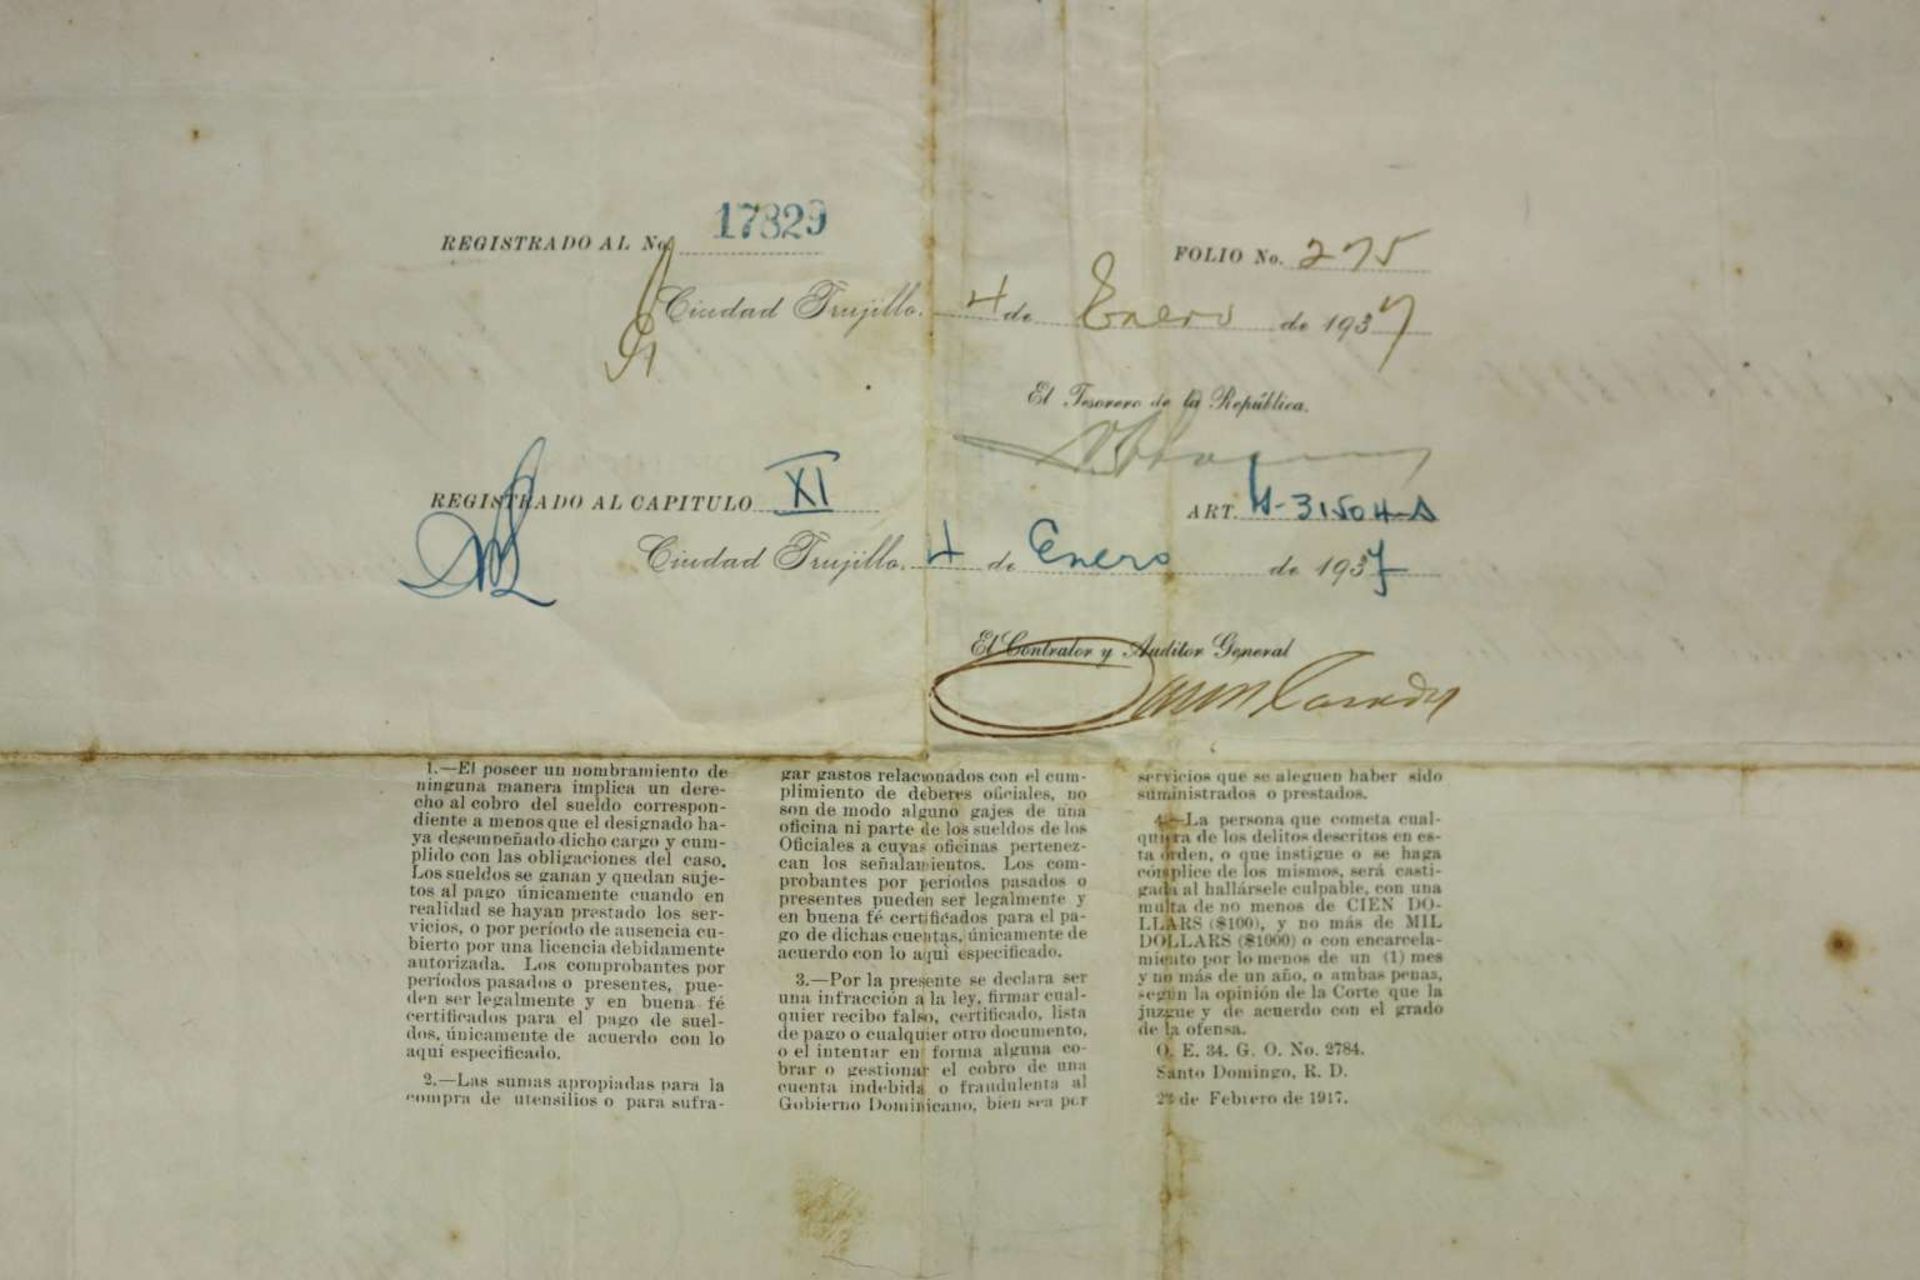 REGISTRADO AL No. 17329
FOLIO No. 275
Ciudad Trujillo. 4 de Enero de 1937
El Tesorero de la República.
REGISTRADO AL CAPITULO XI
ART. 31504-A
Ciudad Trujillo. 4 de Enero de 1937
El Contralor y Auditor General
1.—El poseer un nombramiento de
ninguna manera implica un dere-
cho al cobro del sueldo correspon-
diente a menos que el designado ha-
ya desempeñado dicho cargo y cum-
plido con las obligaciones del caso.
Los sueldos se ganan y quedan suje-
tos al pago únicamente cuando en
realidad se hayan prestado los ser-
vicios, o por período de ausencia cu-
bierto por una licencia debidamente
autorizada. Los comprobantes por
períodos pasados o presentes, pue-
den ser legalmente y en buena fé
certificados para el pago de suel-
dos, únicamente de acuerdo con lo
aquí especificado.
2.—Las sumas apropiadas para la
compra de utensilios o para sufra-
gar gastos relacionados con el cum-
plimiento de deberes oficiales, no
son de modo alguno gajes de una
oficina ni parte de los sueldos de los
Oficiales a cuyas oficinas pertenez-
can los señalamientos. Los com-
probantes por períodos pasados o
presentes pueden ser legalmente y
en buena fé certificados para el pa-
go de dichas cuentas, únicamente de
acuerdo con lo aquí especificado.
3.—Por la presente se declara ser
una infracción a la ley, firmar cual-
quier recibo falso, certificado, lista
de pago o cualquier otro documento,
o el intentar en forma alguna co-
brar o gestionar el cobro de una
cuenta indebida o fraudulenta al
Gobierno Dominicano, bien sea por
servicios que se aleguen haber sido
suministrados o prestados.
4.—La persona que cometa cual-
quiera de los delitos descritos en es-
ta orden, o que instigue o se haga
cómplice de los mismos, será casti-
gada al hallársele culpable, con una
multa de no menos de CIEN DO-
LLARS ($100), y no más de MIL
DOLLARS ($1000) o con encarcela-
miento por lo menos de un (1) mes
y no más de un año, o ambas penas,
según la opinión de la Corte que la
juzgue y de acuerdo con el grado
de la ofensa.
O. E. 34. G. O. No. 2784.
Santo Domingo, R. D.
de Febrero de 1917.